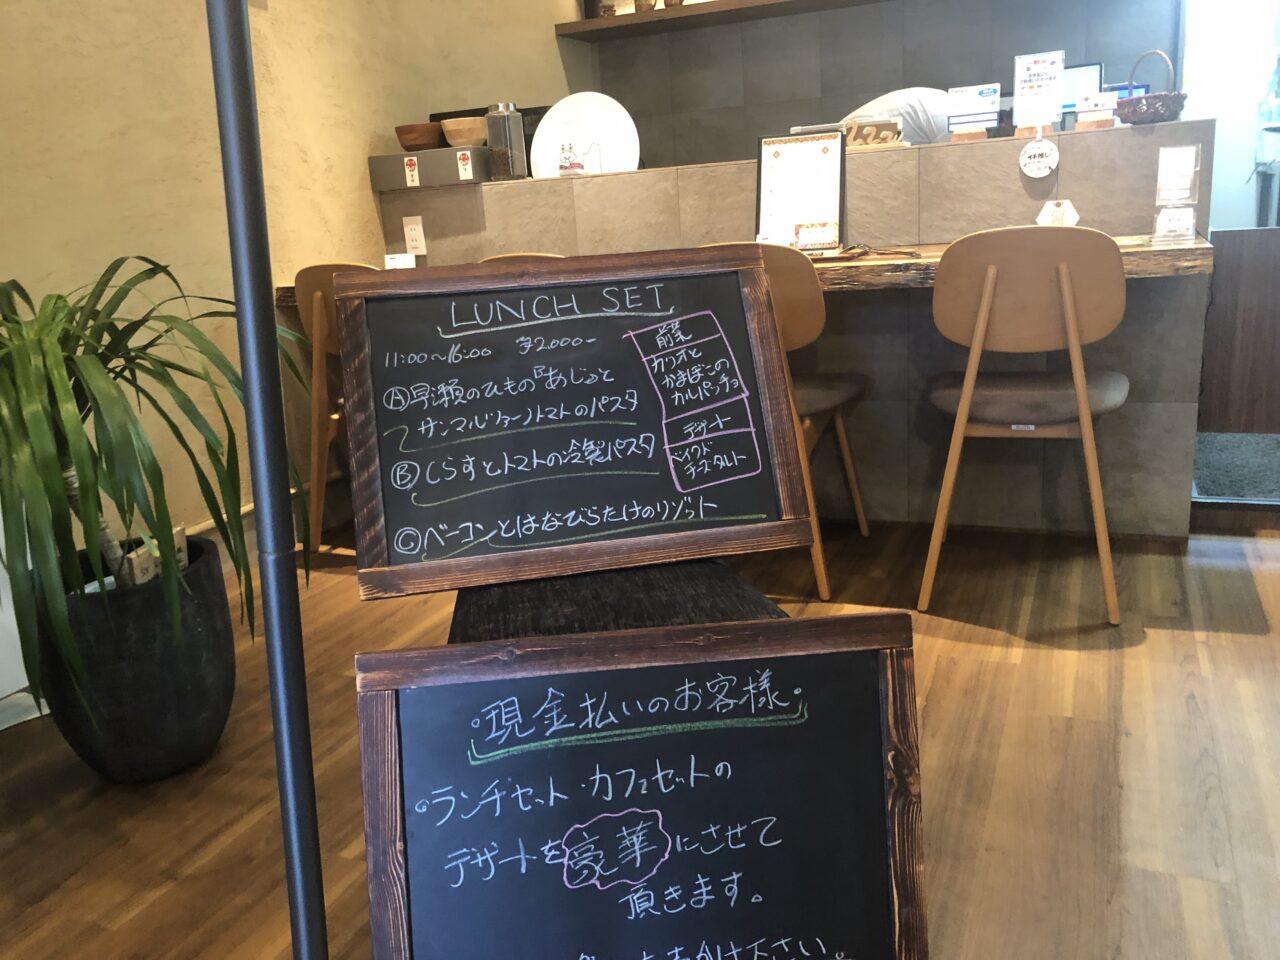 LUNCH SET
11:00〜16:00 ¥2,000-
Ⓐ早瀬のひもの『あじ』と
サンマルツァーノトマトのパスタ
Ⓑしらすとトマトの冷製パスタ
Ⓒベーコンとはなびらたけのリゾット
前菜
カツオと
かまぼこの
カルパッチョ
デザート
ベイクド
チーズタルト
現金払いのお客様
ランチセット・カフェセットの
デザートを豪華にさせて
頂きます。
下さい。